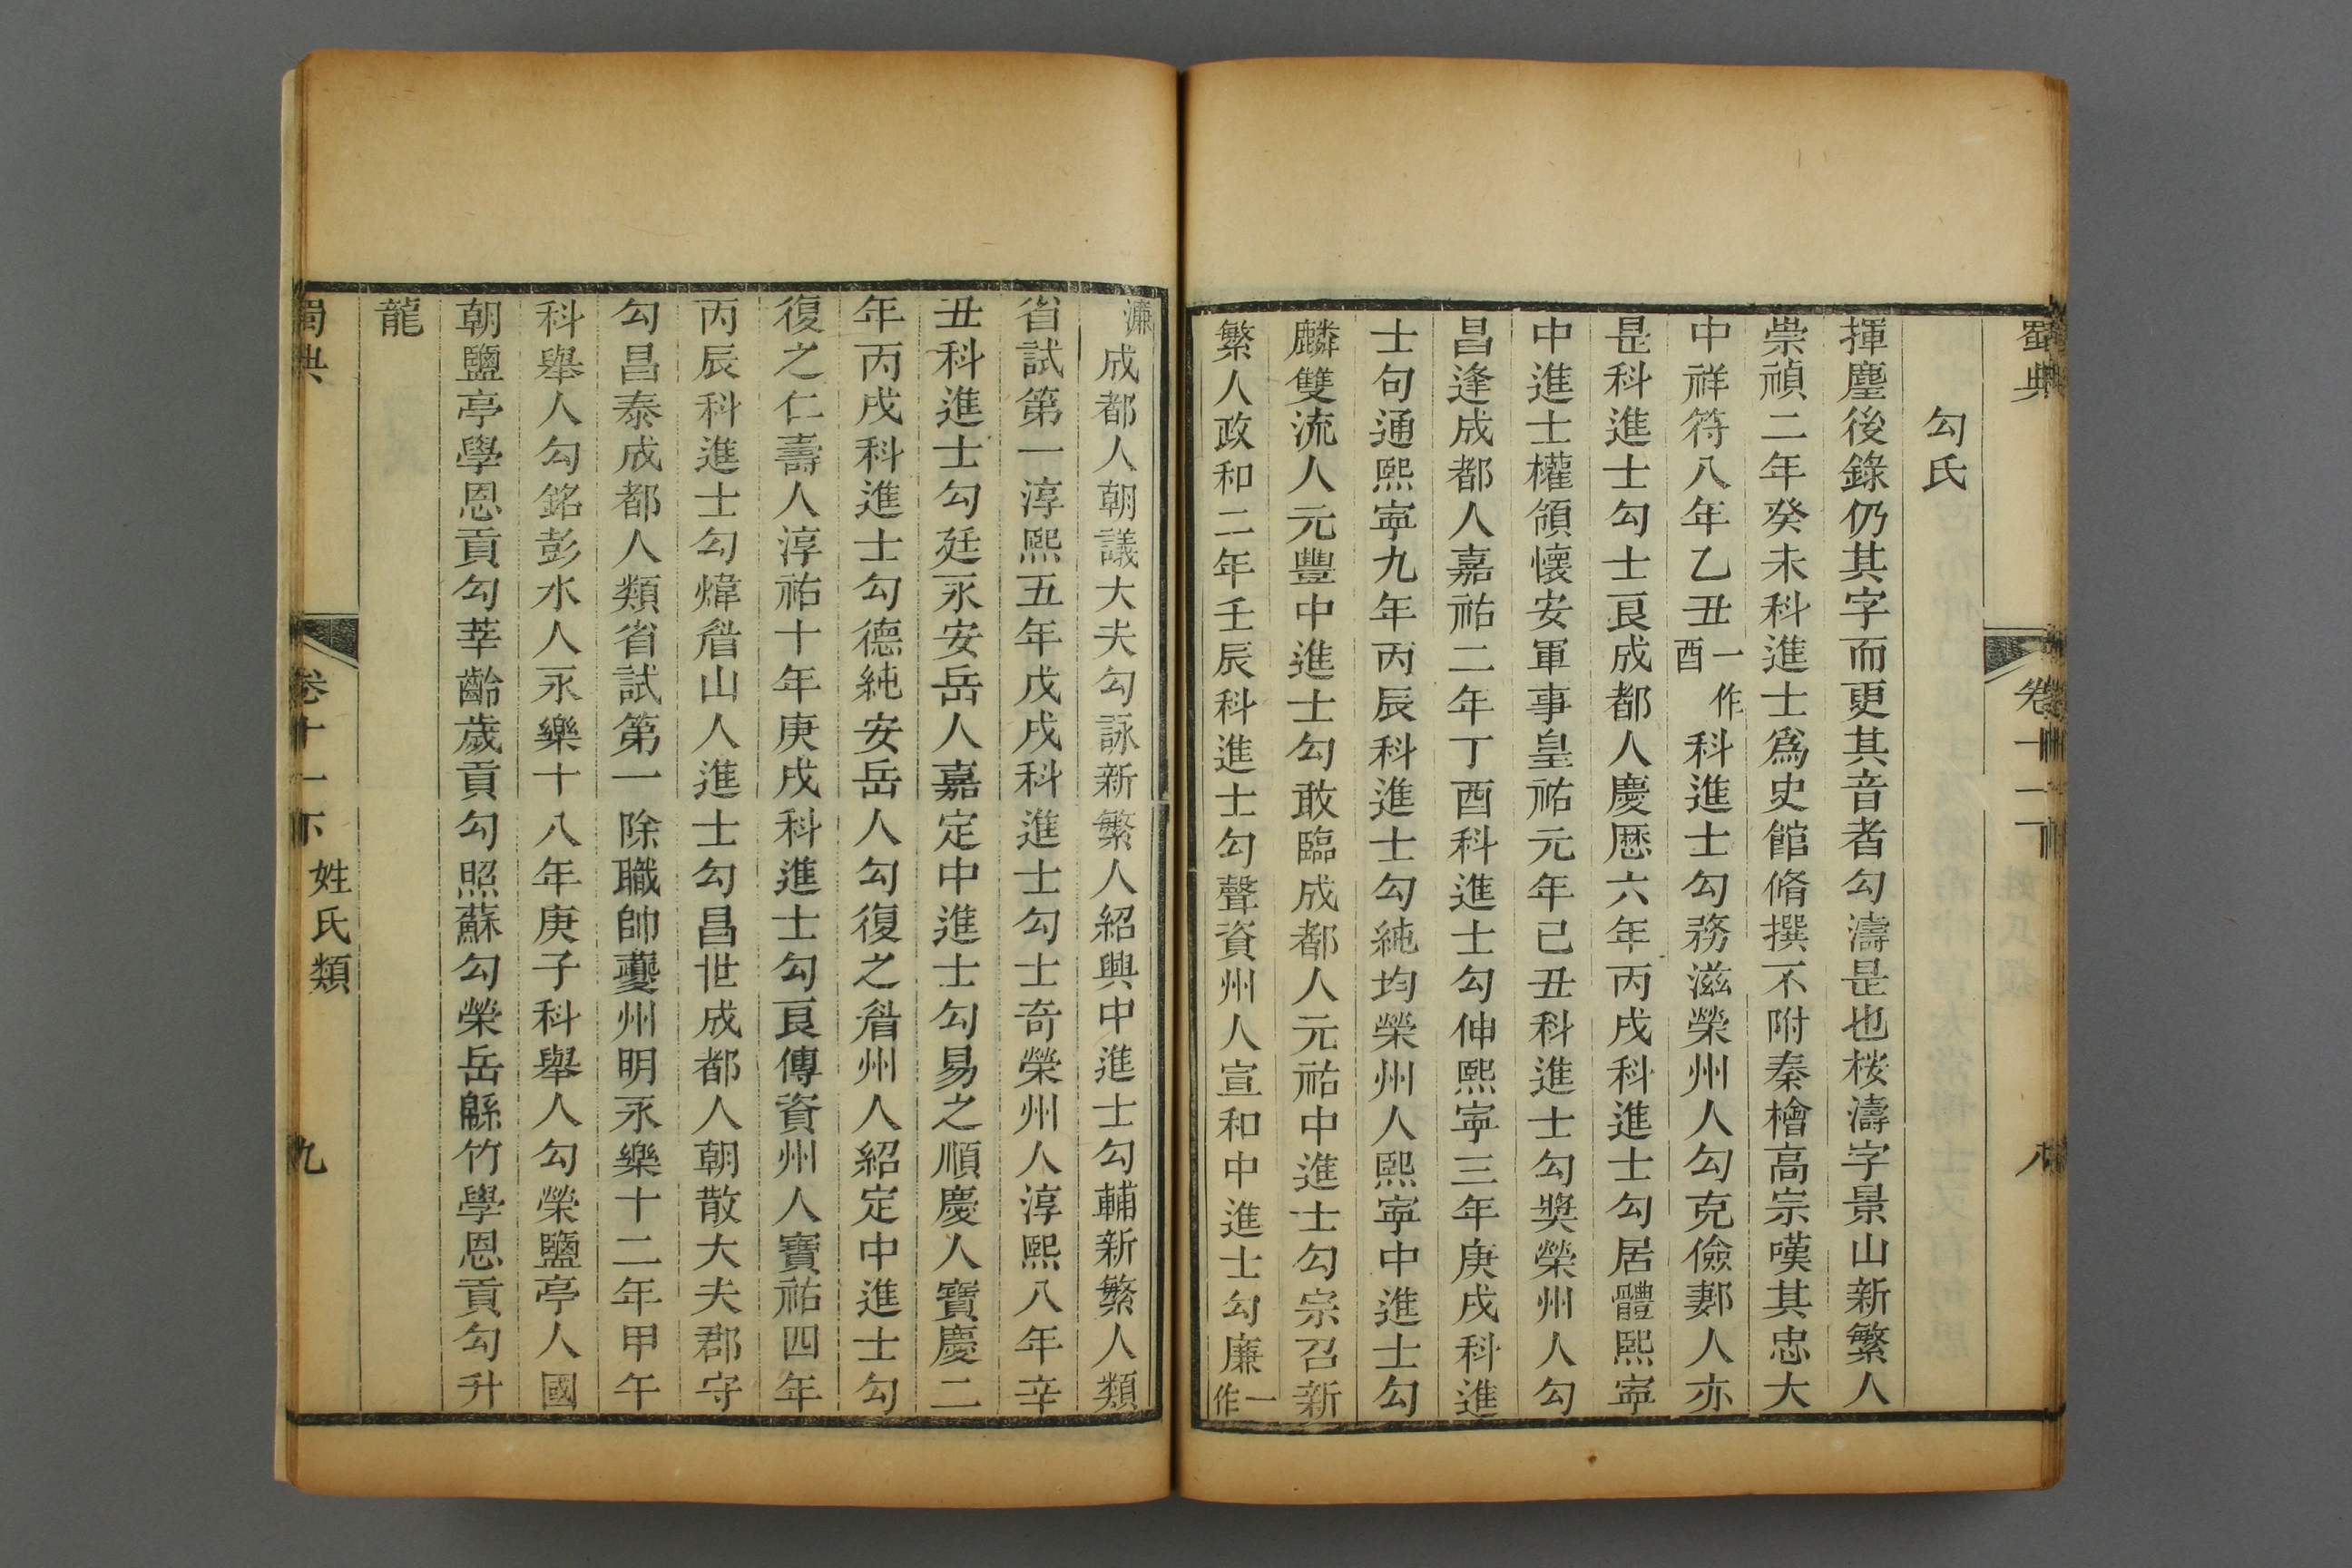 蜀典 卷十一下 八
勾氏
揮麈後錄仍其字而更其音者勾濤是也桉濤字景山新繁人
崇禎二年癸未科進士爲史館脩撰不附秦檜高宗嘆其忠大
中祥符八年乙丑一作酉科進士勾務滋榮州人勾克儉郪人亦
是科進士勾士良成都人慶歷六年丙戌科進士勾居體熙寧
中進士權領懷安軍事皇祐元年己丑科進士勾獎榮州人勾
昌逢成都人嘉祐二年丁酉科進士勾伸熙寧三年庚戌科進
士句通熙寧九年丙辰科進士勾純均榮州人熙寧中進士勾
麟雙流人元豐中進士勾敢臨成都人元祐中進士勾宗召新
繁人政和二年壬辰科進士勾聲資州人宣和中進士勾廉一作
濂成都人朝議大夫勾詠新繁人紹興中進士勾輔新繁人類
省試第一淳熙五年戊戌科進士勾士奇榮州人淳熙八年辛
丑科進士勾廷永安岳人嘉定中進士勾易之順慶人寶慶二
年丙戌科進士勾德純安岳人勾復之眉州人紹定中進士勾
復之仁壽人淳祐十年庚戌科進士勾良傳資州人寶祐四年
丙辰科進士勾煒眉山人進士勾昌世成都人朝散大夫郡守
勾昌泰成都人類省試第一除職帥夔州明永樂十二年甲午
科舉人勾銘彭水人永樂十八年庚子科舉人勾榮鹽亭人國
朝鹽亭學恩貢勾莘齡歲貢勾照蘇勾榮岳緜竹學恩貢勾升
龍
蜀典 卷十一下 姓氏類 九